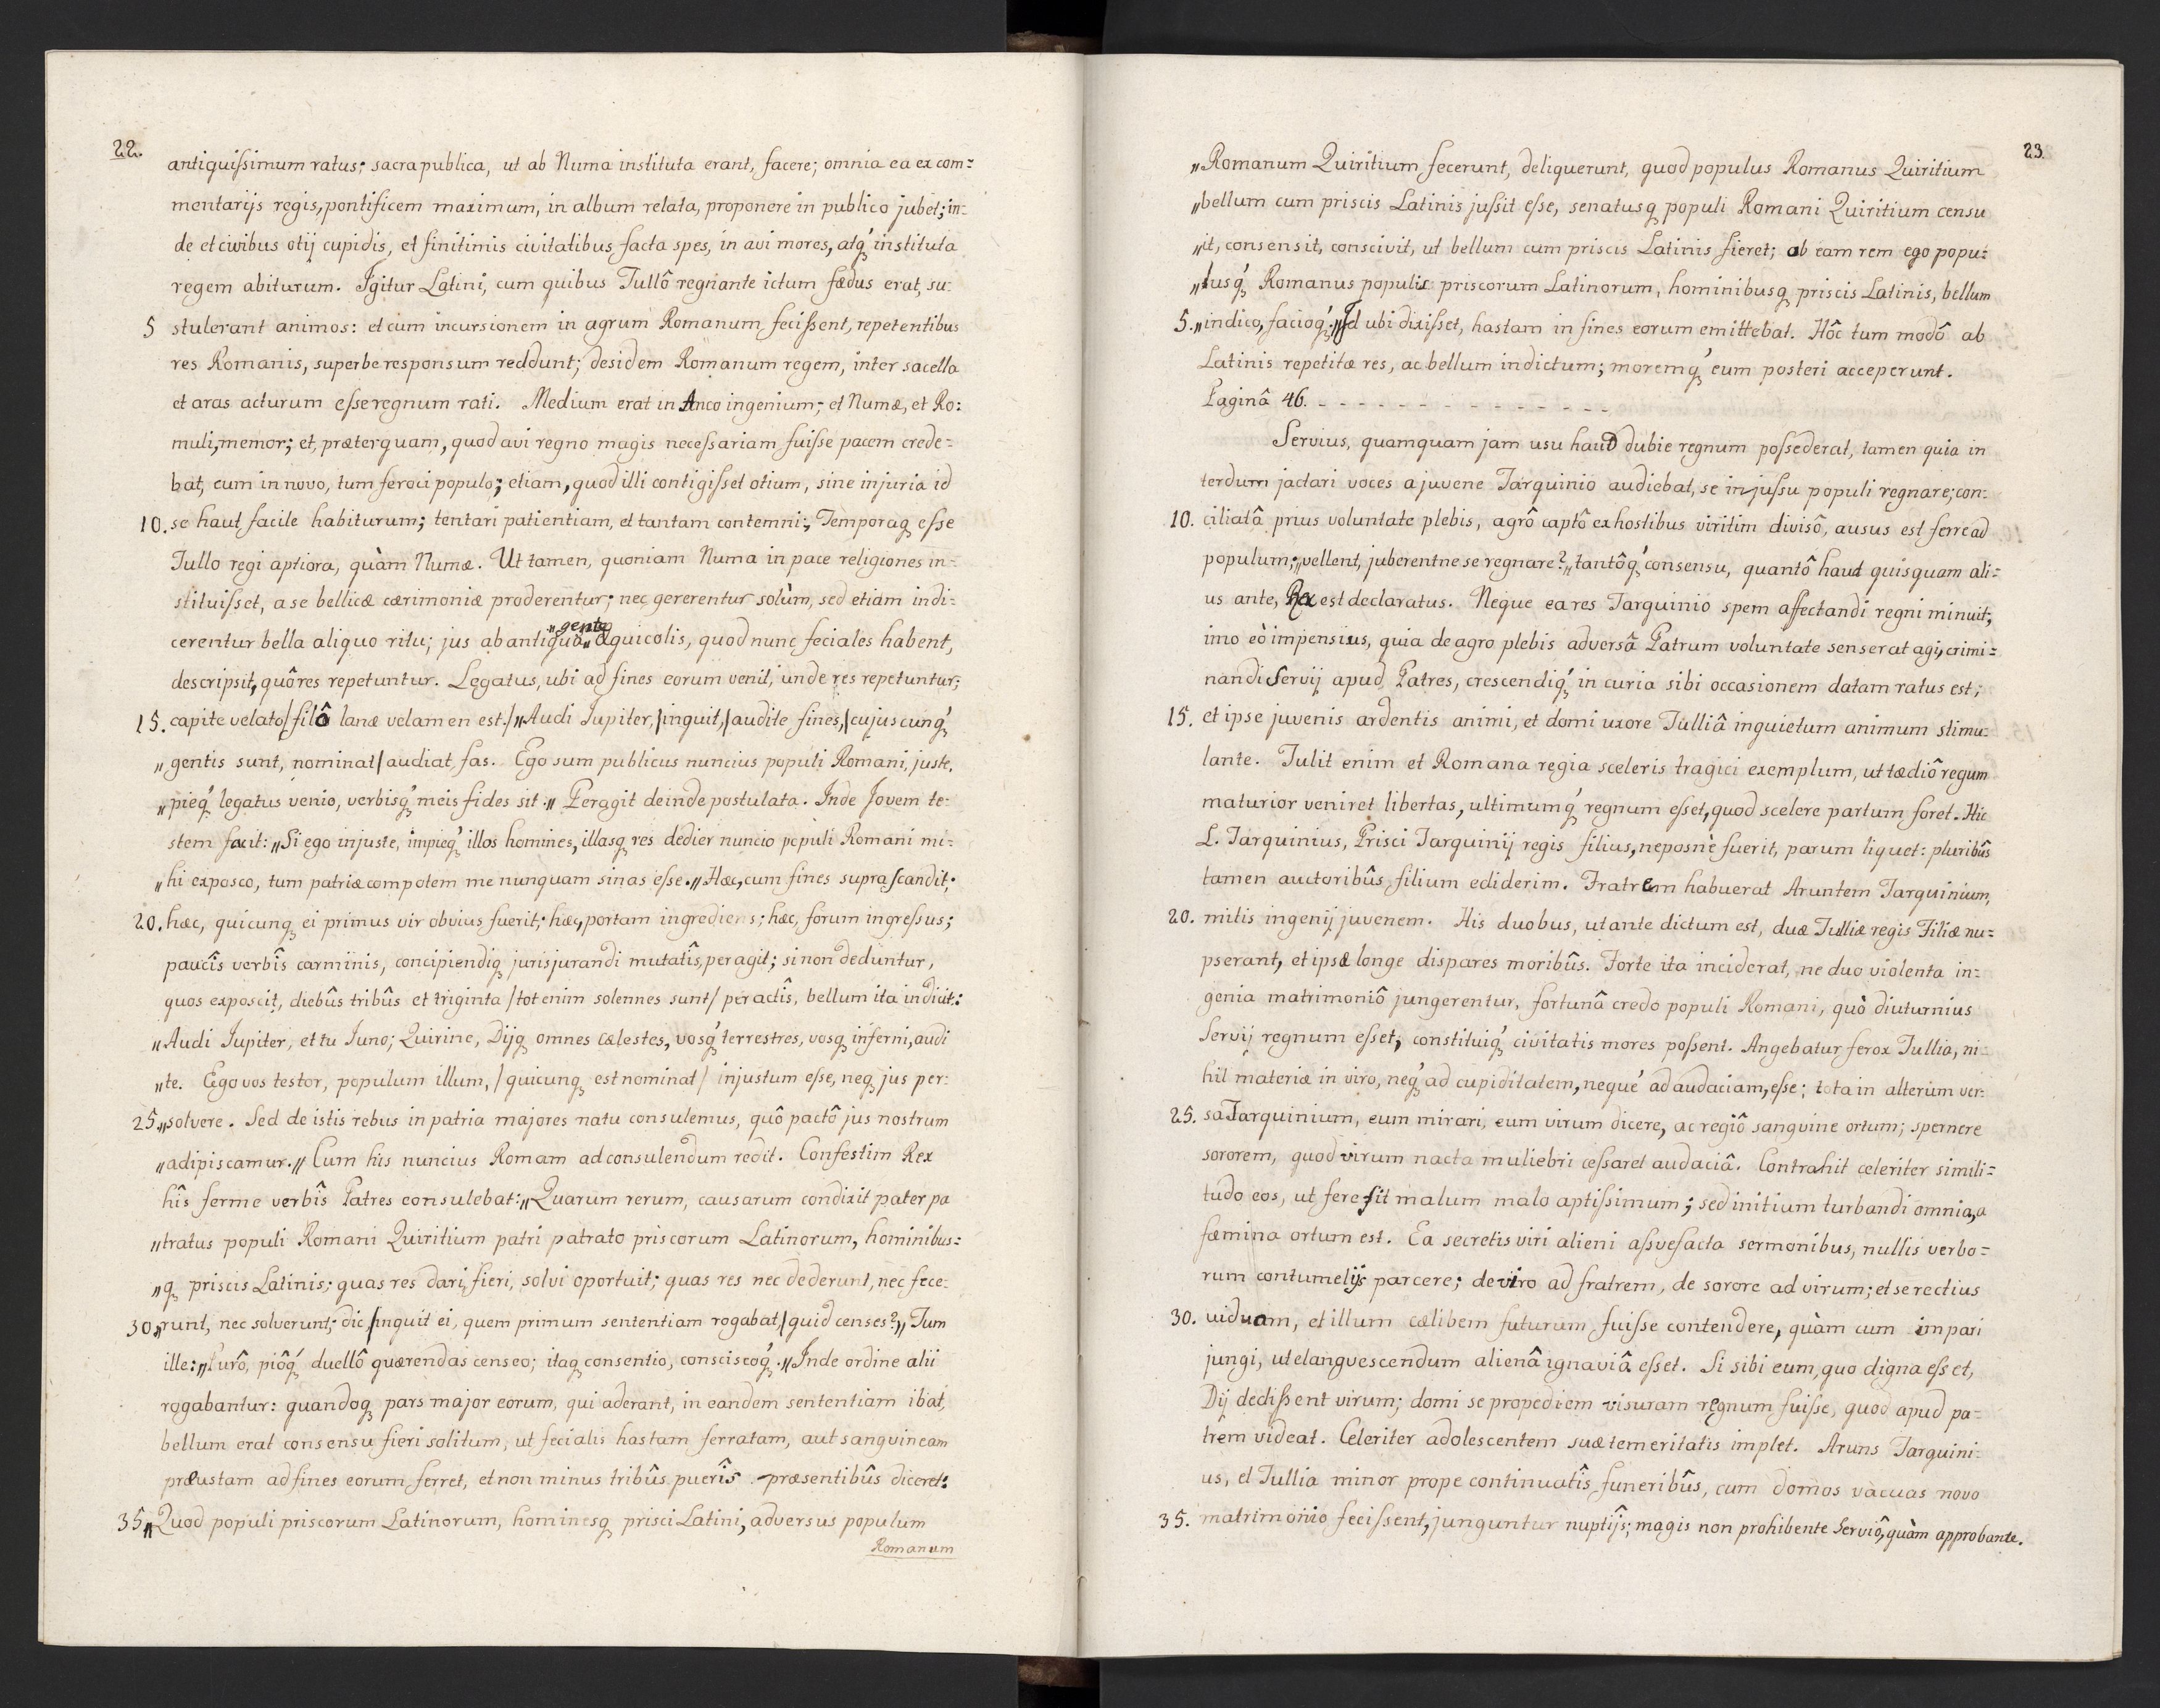 22.
antiquiſsimum ratus; sacra publica, ut ab Numa instituta erant, facere; omnia ea ex com=
mentarijs regis, pontificem maximum, in album relata, proponere in publico jubet; in=
de et civibus otij cupidis, et finitimis civitatibus facta spes, in avi mores, atq́ instituta
regem abiturum. Igitur Latini, cum quibus Tullô regnante ictum fœdus erat, su=
5 stulerant animos: et cum incursionem in agrum Romanum feciſsent, repetentibus
res Romanis, superbe responsum reddunt; desidem Romanum regem, inter sacella
et aras acturum eſse regnum rati. Medium erat in Anco ingenium; et Numæ, et Ro=
muli, memor; et, præterquam, quod avi regno magis neceſsariam fuiſse pacem crede=
bat, cum in novo, tum feroci populo; etiam, quod illi contigiſset otium, sine injuria id
10. se haut facile habiturum; tentari patientiam, et tantam contemni; Temporaq eſse
Tullo regi aptiora, quàm Numæ. Ut tamen, quoniam Numa in pace religiones in=
stituiſset, a se bellicæ cærimoniæ proderentur; nec gererentur solùm, sed etiam indi=
„gente
cerentur bella aliquo ritu; jus ab antiqua„ Æquicolis, quod nunc feciales habent,
descripsit, quô res repetuntur. Legatus, ubi ad fines eorum venit, unde res repetuntur;
15. capite velato /filô lanæ velamen est./ „Audi Jupiter, /inquit,/ audite fines, /cujuscunq́
„gentis sunt, nominat/ audiat fas. Ego sum publicus nuncius populi Romani, juste,
„pieq́ legatus venio, verbisq́ meis fides sit.„ Peragit deinde postulata. Inde Jovem te=
stem facit: „Si ego injuste, impieq́ illos homines, illasq res dedier nuncio populi Romani mi=
„hi exposco, tum patriæ compotem me nunquam sinas eſse.„ Hæc, cum fines supra scandit;
20. hæc, quicunq ei primus vir obvius fuerit; hæc, portam ingrediens; hæc, forum ingreſsus;
paucîs verbîs carminis, concipiendiq jurisjurandi mutatîs, peragit; si non deduntur,
quos exposcit, diebûs tribûs et triginta /tot enim solennes sunt/ peractîs, bellum ita indicit:
„Audi Jupiter, et tu Juno; Quirine, Dijq omnes cælestes, vosq́ terrestres, vosq inferni, audi
„te. Ego vos testor, populum illum, /quicunq est nominat/ injustum eſse, neq jus per=
25. „solvere. Sed de istis rebus in patria majores natu consulemus, quô pactô jus nostrum
„adipiscamur.„ Cum his nuncius Romam ad consulendum redit. Confestim Rex
hîs ferme verbîs Patres consulebat: „Quarum rerum, causarum condixit pater pa
„tratus populi Romani Quiritium patri patrato priscorum Latinorum, hominibus=
„q priscis Latinis; quas res dari, fieri, solvi oportuit; quas res nec dederunt, nec fece=
30 „runt, nec solverunt; dic, /inquit ei, quem primum sententiam rogabat,/ quid censes?„ Tum
ille: „Purô, piôq́ duellô quærendas censeo; itaq consentio, consciscoq́.„ Inde ordine alii
rogabantur: quandoq pars major eorum, qui aderant, in eandem sententiam ibat,
bellum erat consensu fieri solitum, ut fecialis hastam ferratam, aut sanguineam
præustam ad fines eorum ferret, et non minus tribûs puerîs præsentibûs diceret:
35 „Quod populi priscorum Latinorum, hominesq prisci Latini, adversus populum
Romanum
23.
„Romanum Quiritium fecerunt, deliquerunt, quod populus Romanus Quiritium
„bellum cum priscis Latinis juſsit eſse, senatusq populi Romani Quiritium censu
„it, consensit, conscivit, ut bellum cum priscis Latinis fieret; ob eam rem ego popu=
„lusq́ Romanus populis priscorum Latinorum, hominibusq priscis Latinis, bellum
5. „indico, facioq́.„ Id ubi dixiſset, hastam in fines eorum emittebat. Hôc tum modô ab
Latinis repetitæ res, ac bellum indictum; moremq́ eum posteri acceperunt.
Paginâ 46. - - - - - - - - - - - - - - -
Servius, quamquam jam usu hauD dubie regnum poſsederat, tamen quia in
terdum jactari voces a juvene Tarquinio audiebat, se injuſsu populi regnare; con=
10. ciliatâ prius voluntate plebis, agrô captô ex hostibus viritim divisô, ausus est ferre ad
populum; „vellent, juberentne se regnare?„ tantôq́ consensu, quantô haut quisquam ali=
us ante, Rex est declaratus. Neque ea res Tarquinio spem affectandi regni minuit;
imo eò impensius, quia de agro plebis adversâ Patrum voluntate senserat agi, crimi=
nandi Servij apud Patres, crescendiq́ in curia sibi occasionem datam ratus est;
15. et ipse juvenis ardentis animi, et domi uxore Tulliâ inquietum animum stimu=
lante. Tulit enim et Romana regia sceleris tragici exemplum, ut tædiô regum
maturior veniret libertas, ultimumq́ regnum eſset, quod scelere partum foret. Hic
L. Tarquinius, Prisci Tarquinij regis filius, neposnè fuerit, parum liquet: pluribûs
tamen auctoribûs filium ediderim. Fratrem habuerat Aruntem Tarquinium,
20. mitis ingenij juvenem. His duobus, ut ante dictum est, duæ Tulliæ regis Filiæ nu=
pserant, et ipsæ longe dispares moribûs. Forte ita inciderat, ne duo violenta in=
genia matrimoniô jungerentur, fortunâ credo populi Romani, quò diuturnius
Servij regnum eſset, constituiq́ civitatis mores poſsent. Angebatur ferox Tullia, ni=
hil materiæ in viro, neq́ ad cupiditatem, nequé ad audaciam, eſse; tota in alterum ver=
25. sa Tarquinium, eum mirari, eum virum dicere, ac regiô sanguine ortum; spernere
sororem, quod virum nacta muliebri ceſsaret audaciâ. Contrahit celeriter simili=
tudo eos, ut fere fit malum malo aptiſsimum; sed initium turbandi omnia, a
fæmina ortum est. Ea secretis viri alieni aſsvefacta sermonibus, nullis verbo=
rum contumelijs parcere; de viro ad fratrem, de sorore ad virum; et se rectius
30. viduam, et illum cælibem futurum fuiſse contendere, quàm cum impari
jungi, ut elangvescendum alienâ ignaviâ eſset. Si sibi eum, quo digna eſset,
Dij dediſsent virum; domi se propediem visuram regnum fuiſse, quod apud pa=
trem videat. Celeriter adolescentem suæ temeritatis implet. Aruns Tarquini=
us, et Tullia minor prope continuatîs funeribûs, cum domos vacuas novo
35. matrimonio feciſsent, junguntur nuptijs; magis non prohibente Serviô, quàm approbante.